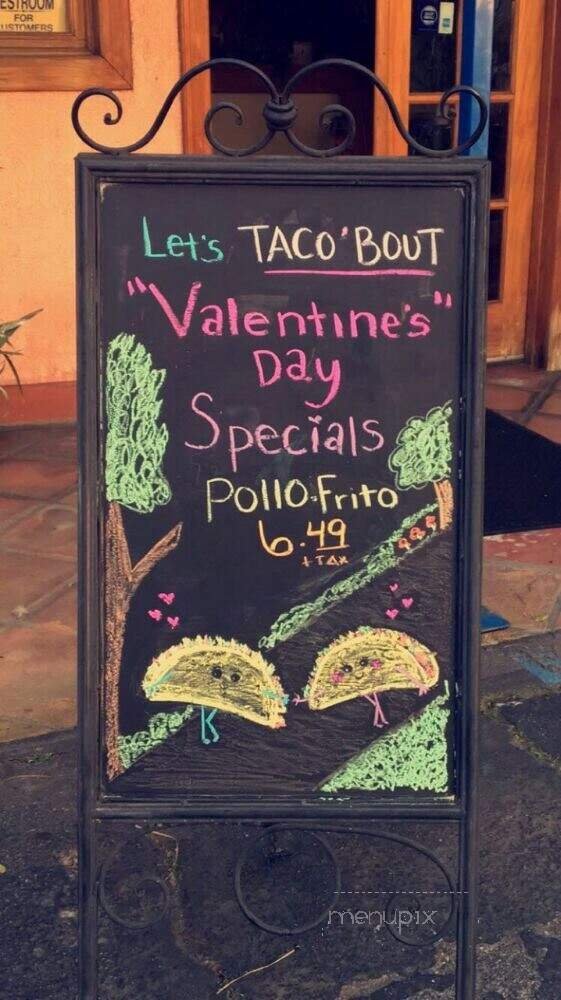 RESTROOM
FOR
CUSTOMERS
Let's TACO'BOUT
"Valentine's"
Day
Specials
Pollo Frito
6.49
+ TAX
menupix